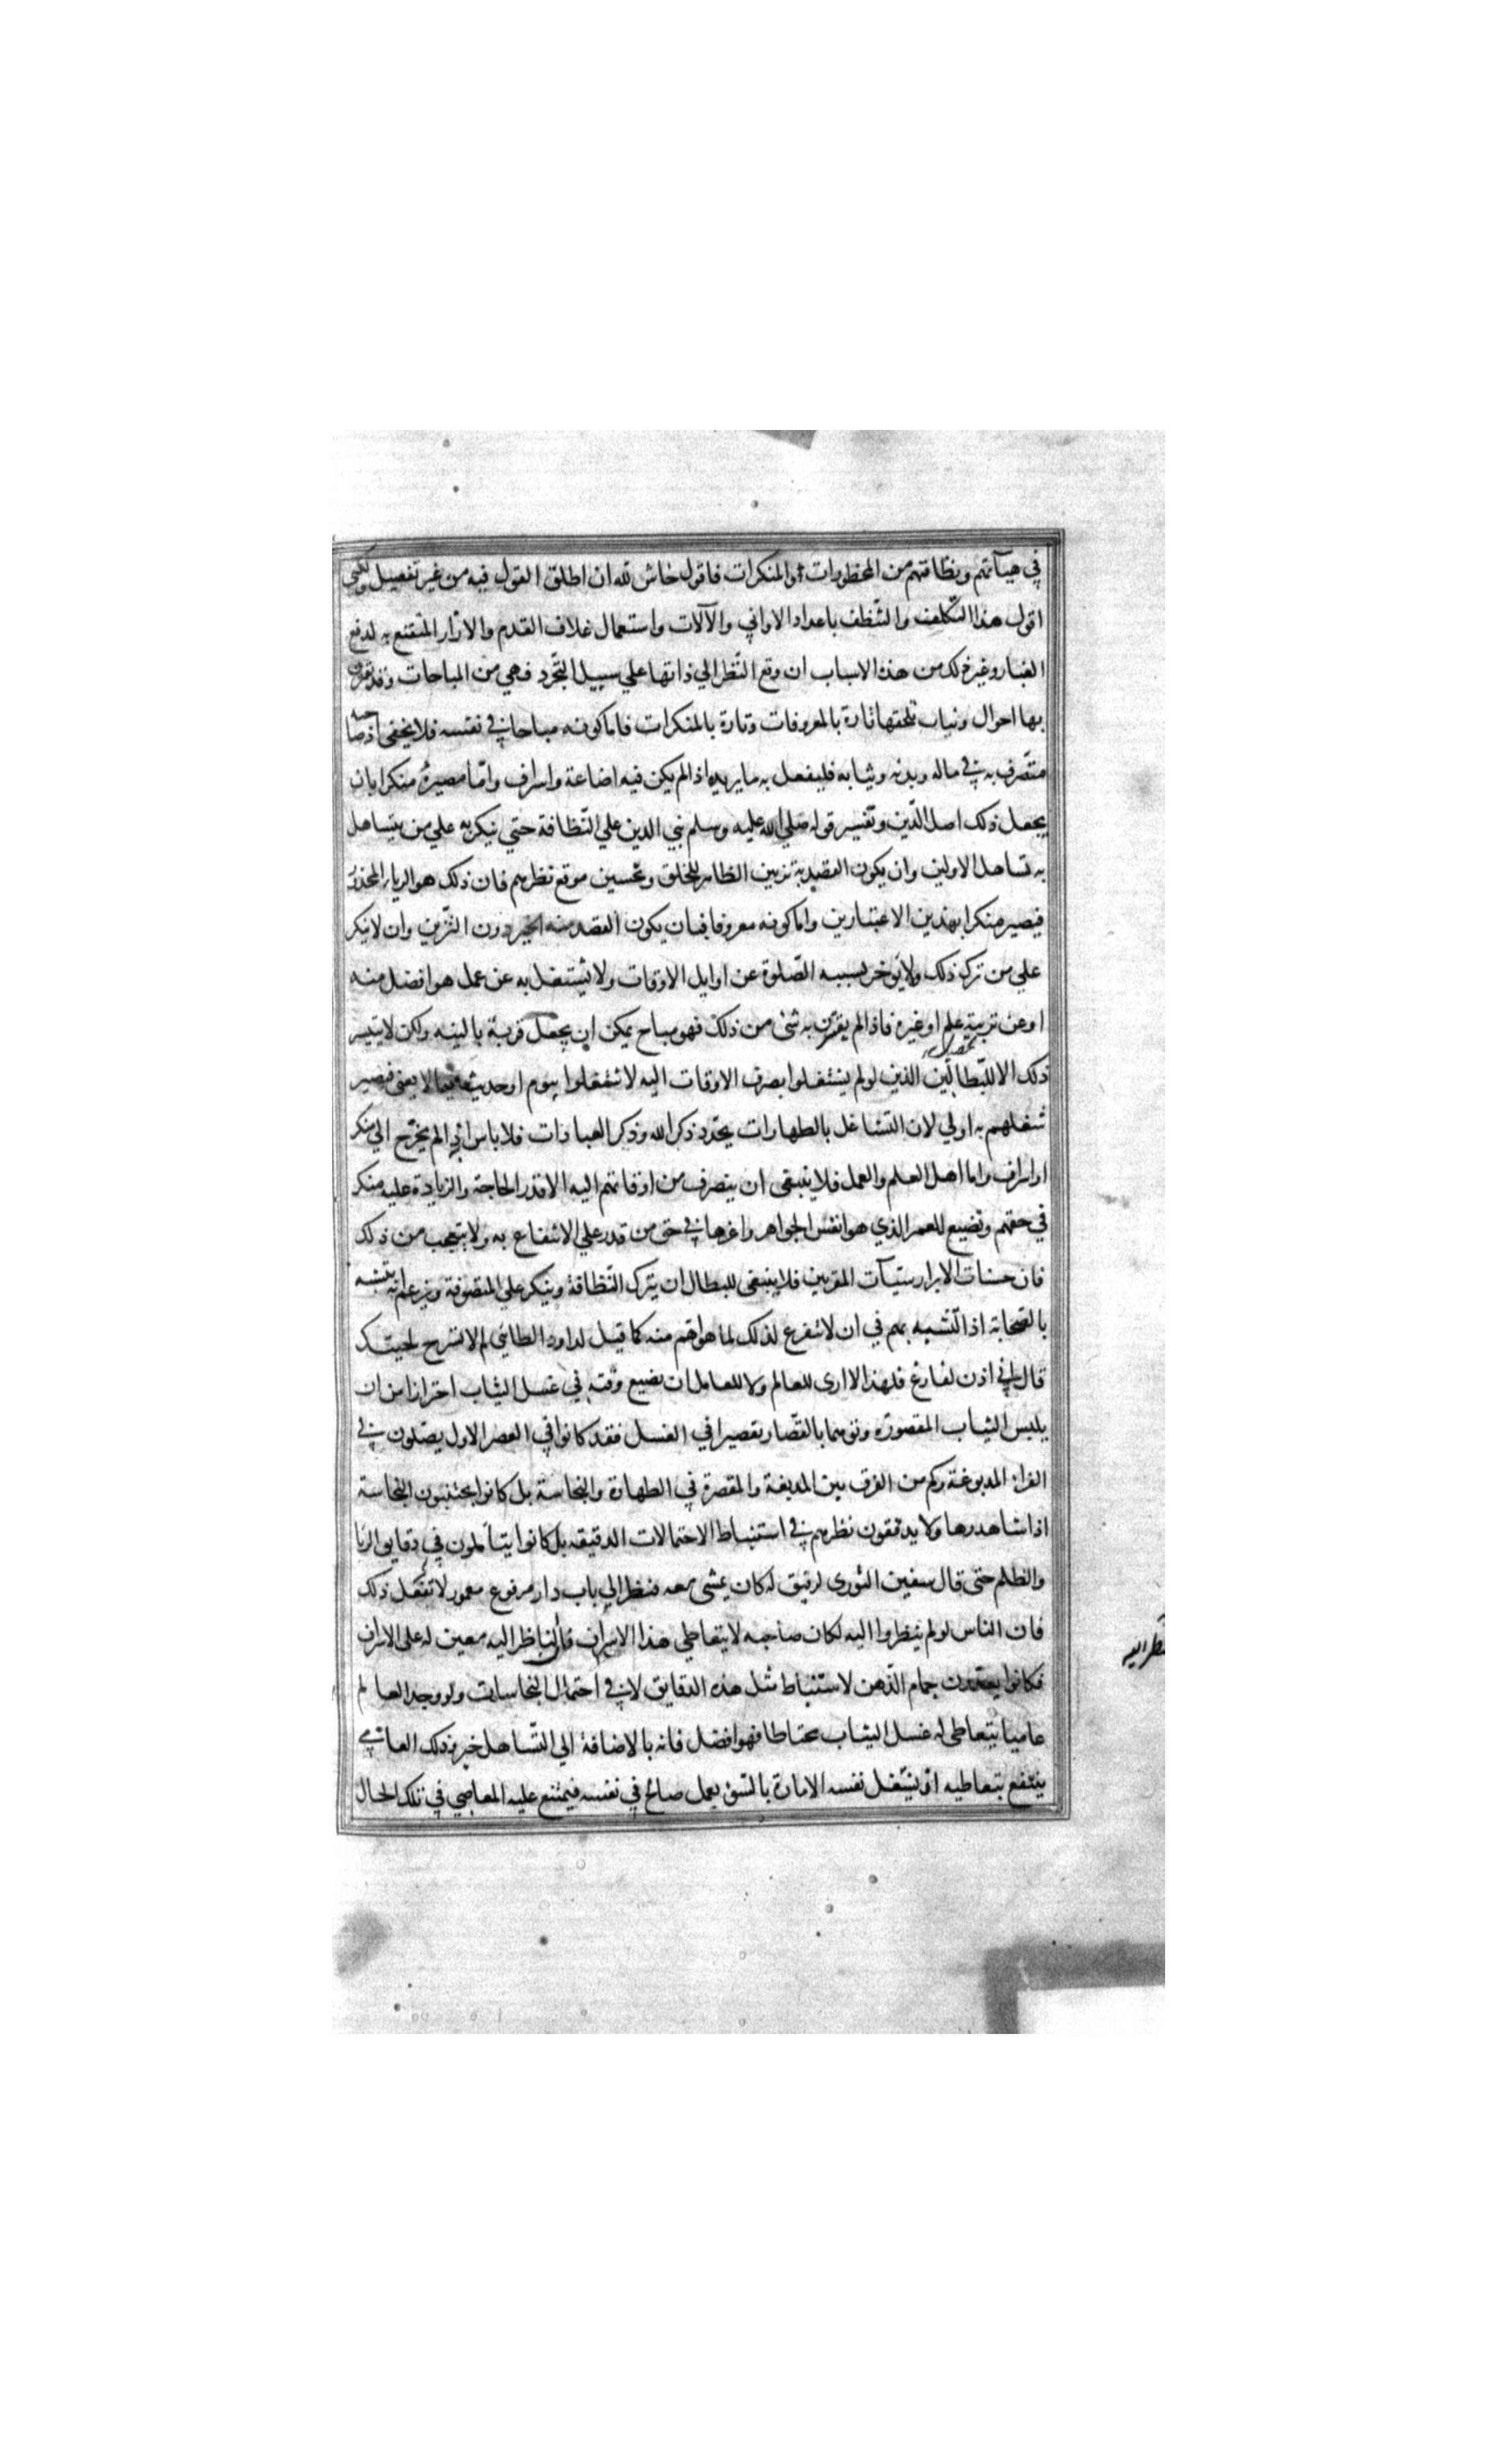 في هيآتهم ونظافتهم من المحظورات او المنكرات فاقول حاش لله ان اطلق القول فيه من غير تفصيل ولكني
اقول هذا التكلف والتنظف باعداد الاواني والآلات واستعمال غلاف القدم والازار المتقنع به لدفع
الغبار وغير ذلك من هذه الاسباب ان وقع النظر الي ذاتها علي سبيل التجرد فهي من المباحات وقد تقترن
بها احوال ونيات تلحقها تارة بالمعروفات وتارة بالمنكرات فاما كونه مباحا في نفسه فلا يخفى اذ صاحبه
متصرف به في ماله وبدنه وثيابه فليفعل به ما يريده اذا لم يكن فيه اضاعة واسراف واما مصيره منكرا بان
يجعل ذلك اصل الدين وتفسير قوله صلي الله عليه وسلم بني الدين علي النظافة حتي ينكر به علي من يتساهل
به تساهل الاولين وان يكون القصد به تزيين الظاهر للخلق وتحسين موقع نظرهم فان ذلك هو الرياء المحذور
فيصير منكرا بهذين الاعتبارين واما كونه معروفا فبان يكون القصد منه الخير دون التزين وان لا ينكر
علي من ترك ذلك ولا يؤخر بسببه الصلوة عن اوايل الاوقات ولا يشتغل به عن عمل هو افضل منه
او عن تربية علم او غيره فاذا لم يقترن به شئ من ذلك فهو مباح يمكن ان يجعل قربة بالنية ولكن لا يتيسر
ذلك الا للبطالين الذين لو لم يشتغلوا بصرف الاوقات اليه لاشتغلوا بنوم او حديث فيما لا يعني فيصير
شغلهم به اولي لان التشاغل بالطهارات يجدد ذكر الله وذكر العبادات فلا باس اذا لم يخرج الي منكر
او اسراف واما اهل العلم والعمل فلا ينبغي ان ينصرف من اوقاتهم اليه الا قدر الحاجة والزيادة عليه منكر
في حقهم وتضييع للعمر الذي هو انفس الجواهر واعزها في حق من قدر علي الانتفاع به ولا يتعجب من ذلك
فان حسنات الابرار سيئآت المقربين فلا ينبغي للبطال ان يترك النظافة وينكر علي المتصوفة ويزعم انه يتشبه
بالصحابة اذ التشبه بهم في ان لا يتفرغ لذلك لما هو اهم منه كما قيل لداود الطائي لم لا تسرح لحيتك
قال اني اذن لفارغ فلهذا لا ارى للعالم ولا للعامل ان يضيع وقته في غسل الثياب احترازا من ان
يلبس الثياب المقصورة وتوهما بالقصار تقصيرا في الغسل فقد كانوا في العصر الاول يصلون في
الفراء المدبوغة وكم من الفرق بين المدبغة والمقصرة في الطهارة والنجاسة بل كانوا يجتنبون النجاسة
اذا شاهدوها ولا يدققون نظرهم في استنباط الاحتمالات الدقيقه بل كانوا يتأملون في دقايق الريا
والظلم حتى قال سفين الثورى لرفيق له كان يمشي معه فنظر الي باب دار مرفوع معمور لا تفعل ذلك
فان الناس لو لم ينظروا اليه لكان صاحبه لا يتعاطي هذا الاسراف فالناظر اليه معين له على الاسراف
فكانوا يعتدون جمام الذهن لاستنباط مثل هذه الدقايق لا في احتمال النجاسات ولو وجد العالم
عاميا يتعاطى له غسل الثياب محتاطا فهو افضل فانه بالاضافة الي التساهل خير وذلك العامي
ينتفع بتعاطيه اذ يشتغل نفسه الامارة بالسوء بعمل صالح في نفسه فيمتنع عليه المعاصي في تلك الحال